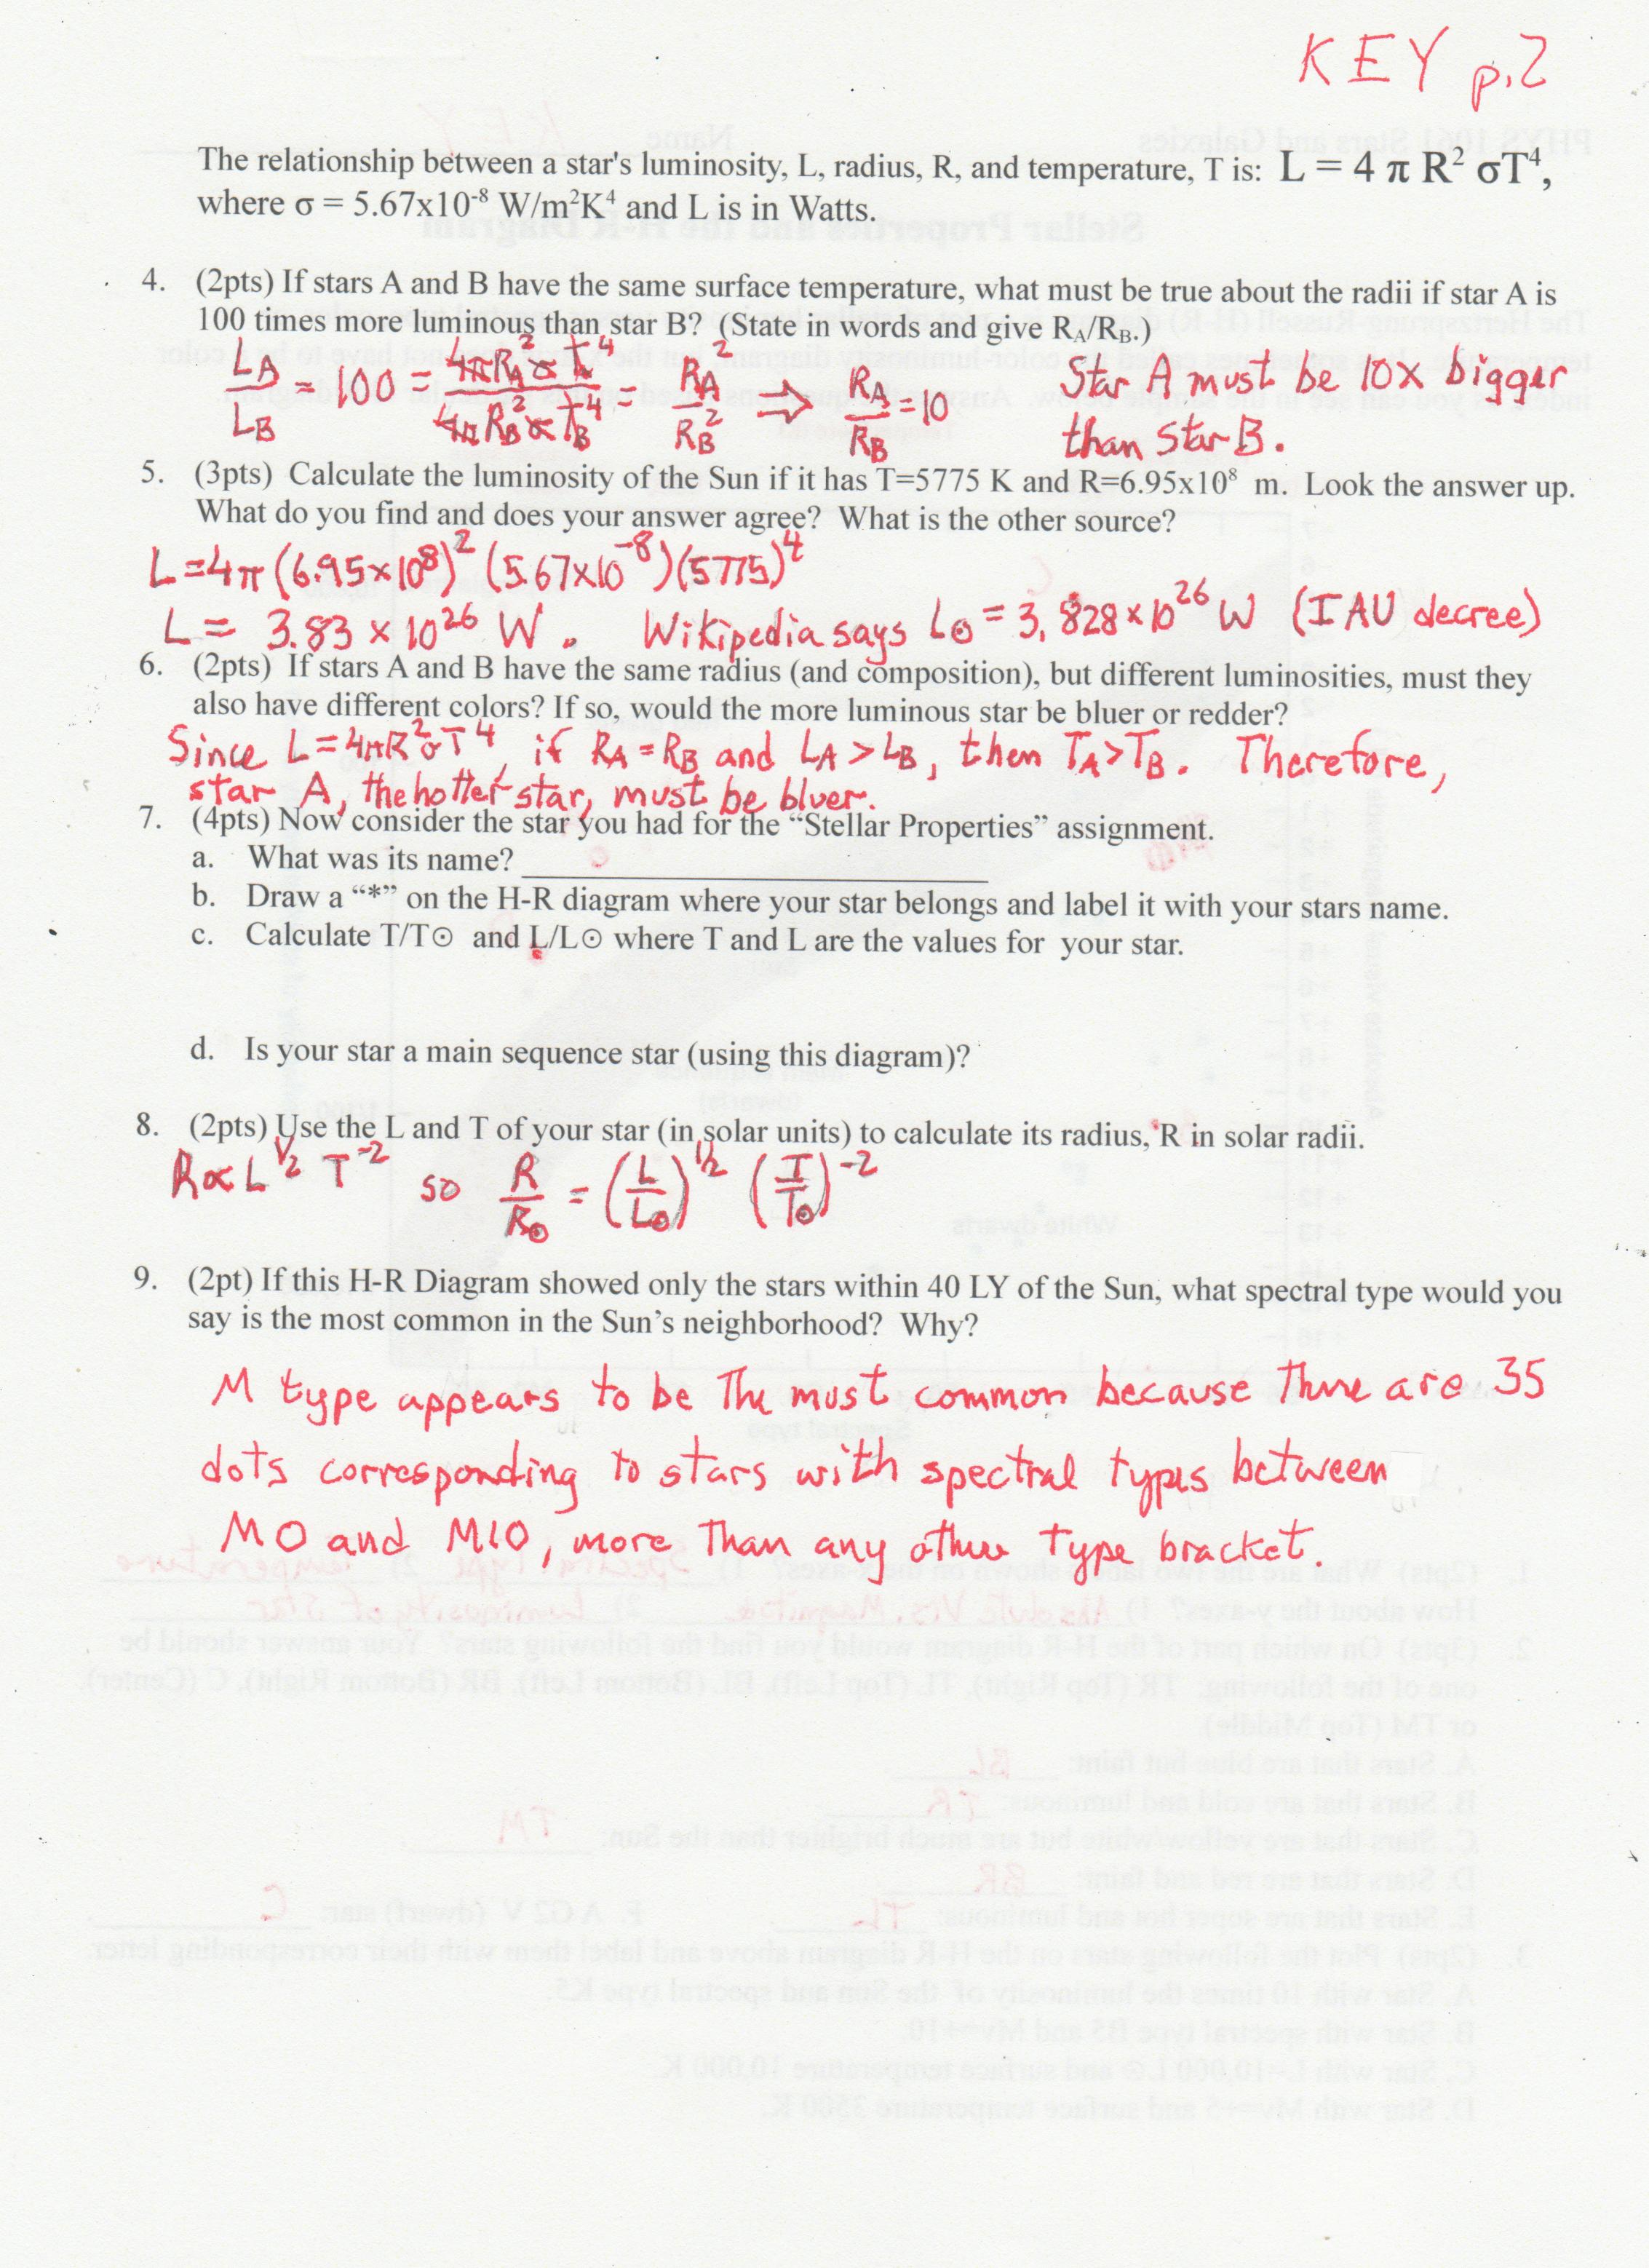 KEY p.2
The relationship between a star's luminosity, L, radius, R, and temperature, T is: L = 4 π R² σT⁴,
where σ = 5.67x10⁻⁸ W/m²K⁴ and L is in Watts.
4. (2pts) If stars A and B have the same surface temperature, what must be true about the radii if star A is
100 times more luminous than star B? (State in words and give R_A/R_B.)
L_A/L_B = 100 = 4πR_A²σT_A⁴/4πR_B²σT_B⁴ = R_A²/R_B² ⇒ R_A/R_B = 10 Star A must be 10x bigger
than Star B.
5. (3pts) Calculate the luminosity of the Sun if it has T=5775 K and R=6.95x10⁸ m. Look the answer up.
What do you find and does your answer agree? What is the other source?
L = 4π (6.95×10⁸)² (5.67×10⁻⁸)(5775)⁴
L = 3.83 × 10²⁶ W. Wikipedia says L⊙ = 3.828×10²⁶ W (IAU decree)
6. (2pts) If stars A and B have the same radius (and composition), but different luminosities, must they
also have different colors? If so, would the more luminous star be bluer or redder?
Since L = 4πR²σT⁴, if R_A = R_B and L_A > L_B, then T_A > T_B. Therefore,
star A, the hotter star, must be bluer.
7. (4pts) Now consider the star you had for the “Stellar Properties” assignment.
a. What was its name?
b. Draw a “*” on the H-R diagram where your star belongs and label it with your stars name.
c. Calculate T/T⊙ and L/L⊙ where T and L are the values for your star.
d. Is your star a main sequence star (using this diagram)?
8. (2pts) Use the L and T of your star (in solar units) to calculate its radius, R in solar radii.
R∝L^½ T⁻² so R/R⊙ = (L/L⊙)^½ (T/T⊙)⁻²
9. (2pt) If this H-R Diagram showed only the stars within 40 LY of the Sun, what spectral type would you
say is the most common in the Sun’s neighborhood? Why?
M type appears to be the most common because there are 35
dots corresponding to stars with spectral types between
M0 and M10, more than any other type bracket.